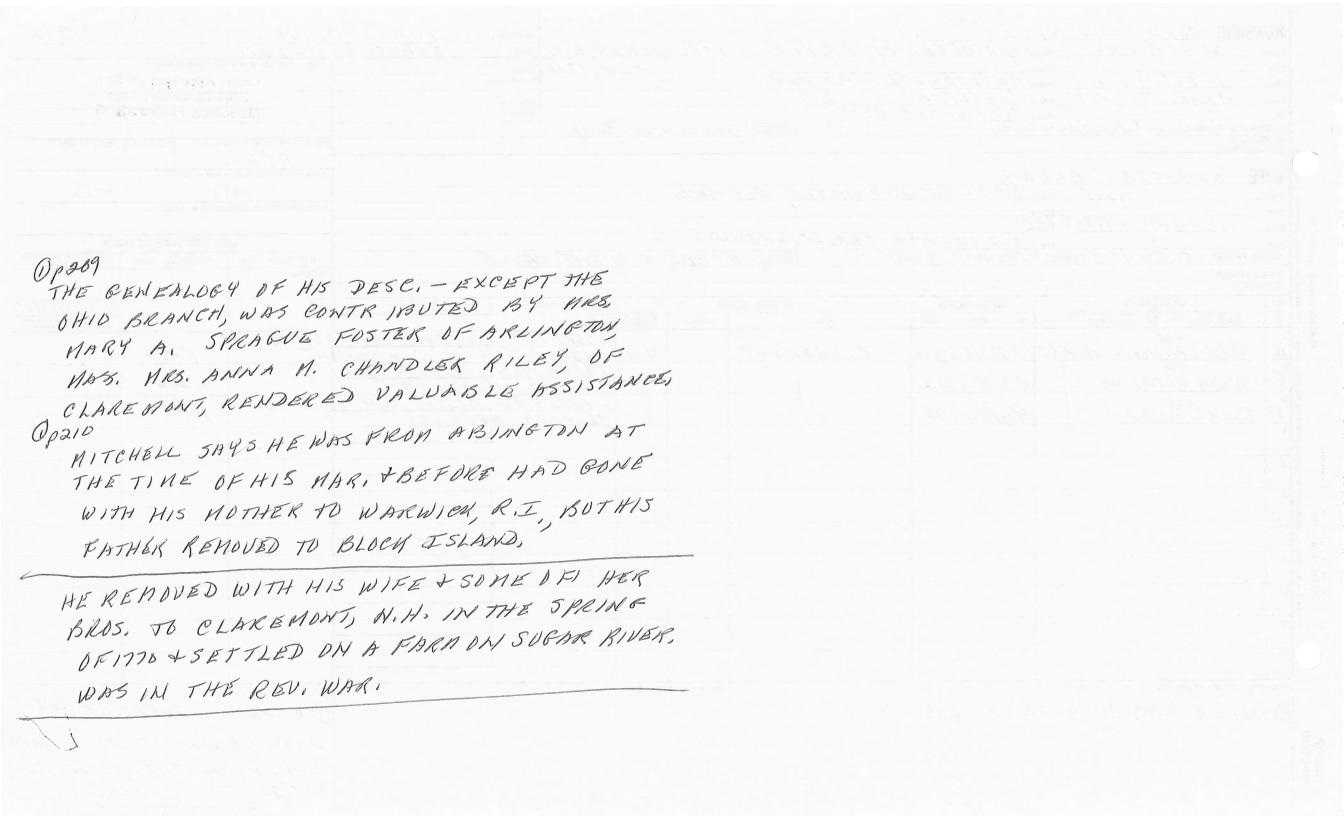 ① p209
THE GENEALOGY OF HIS DESC. — EXCEPT THE
OHIO BRANCH, WAS CONTRIBUTED BY MRS.
MARY A. SPRAGUE FOSTER OF ARLINGTON,
MAS. MRS. ANNA M. CHANDLER RILEY, OF
CLAREMONT, RENDERED VALUABLE ASSISTANCE.
① p210
MITCHELL SAYS HE WAS FROM ABINGTON AT
THE TIME OF HIS MAR. & BEFORE HAD GONE
WITH HIS MOTHER TO WARWICK, R.I., BUT HIS
FATHER REMOVED TO BLOCK ISLAND.
HE REMOVED WITH HIS WIFE & SOME OF HER
BROS. TO CLAREMONT, N.H. IN THE SPRING
OF 1770 & SETTLED ON A FARM ON SUGAR RIVER.
WAS IN THE REV. WAR.